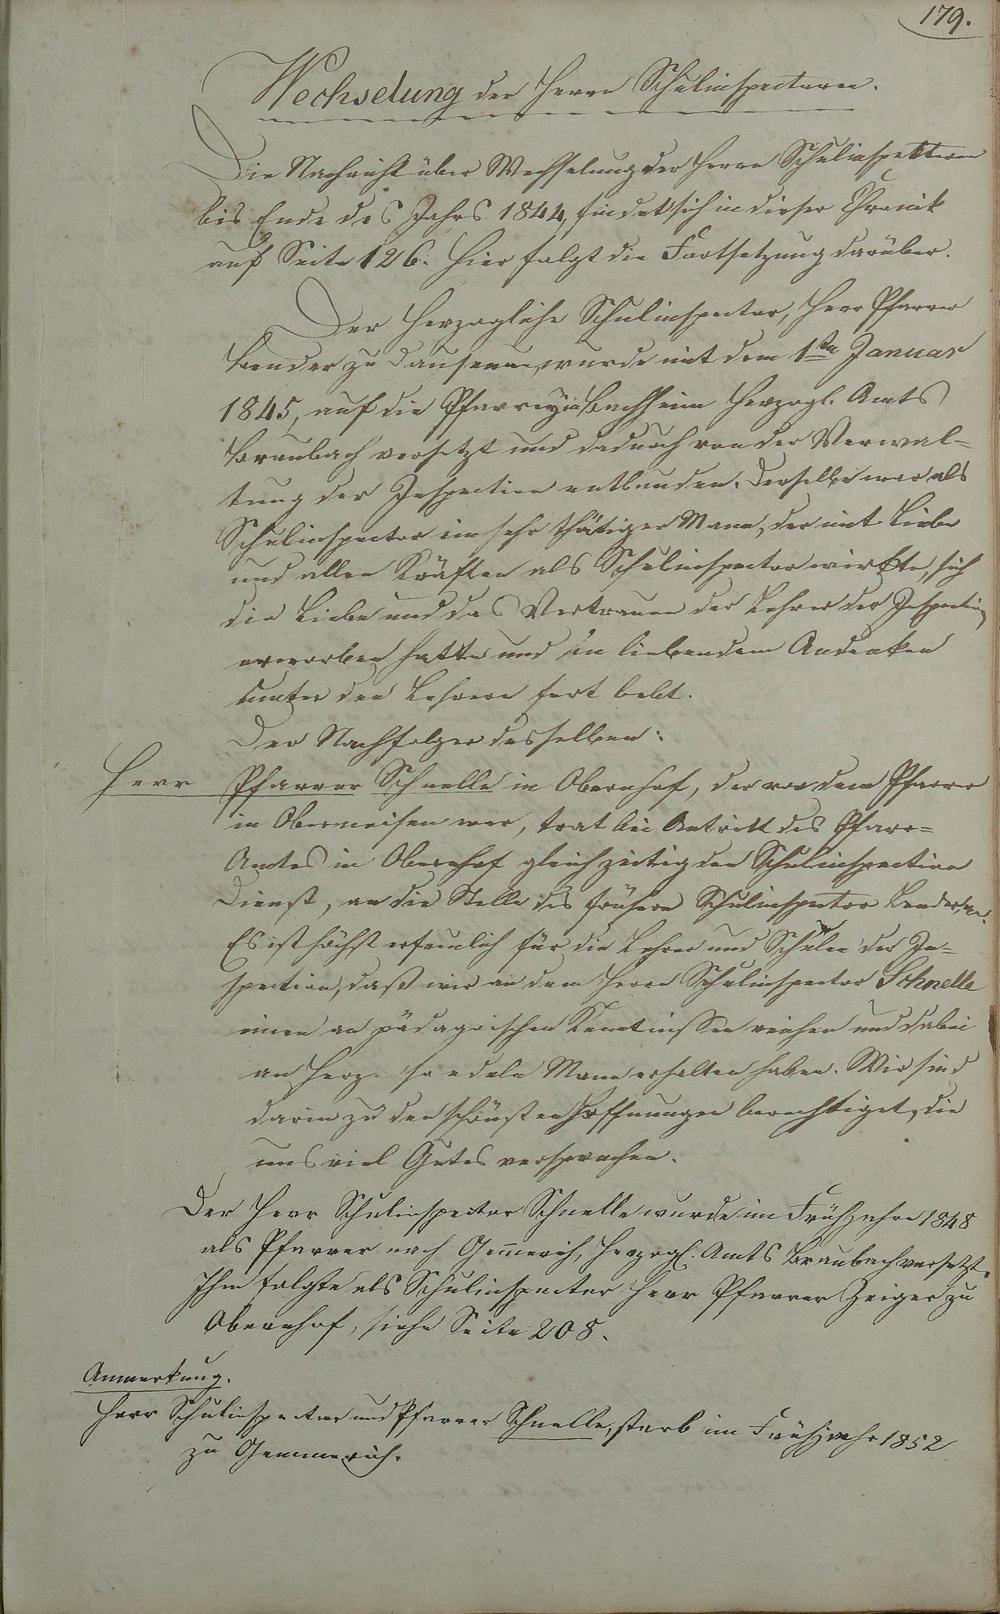 179.
Wechselung der Herrn Schulinspectoren.
Die Nachricht über Wechselung der Herrn Schulinspektoren
bis Ende des Jahrs 1844, findet sich in dieser Chronik
auf Seite 126. Hier folgt die Fortsetzung darüber.
Der Herzogliche Schulinspector, Herr Pfarrer
Bender zu Dausenau, wurde mit dem 1ten Januar
1845, auf die Pfarrey Bachheim Herzogl. Amts
Braubach versetzt und dadurch von der Verwal=
tung der Inspection entbunden. Derselbe war als
Schulinspector ein sehr thätiger Mann, der mit Liebe
und allen Kräften als Schulinspector wirkte, sich
die Liebe und das Vertrauen der Lehrer der Inspection
erworben hatte und in liebendem Andenken
unter den Lehrern fort lebt.
Der Nachfolger desselben:
Herr Pfarrer Schnelle in Obernhof, der vordem Pfarrer
in Oberneisen war, trat bei Antritt des Pfarr=
Amtes in Obernhof gleichzeitig den Schulinspection
Dienst, an die Stelle des frühern Schulinspector Bender, an.
Es ist höchst erfreulich für die Lehrer und Schüler der In=
spection, daß wir an dem Herrn Schulinspector Schnelle
einen an pädagoischen Kenntnissen reichen und dabei
an Herz so edeln Mann erhalten haben. Wir sind
darin zu den schönsten Hoffnungen berechtiget, die
uns viel Gutes versprechen.
Der Herr Schulinspector Schnelle wurde im Frühjahre 1848
als Pfarrer nach Gemmerich, Herzogl. Amts Braubach versetzt.
Ihm folgte als Schulinspector Herr Pfarrer Zeiger zu
Obernhof, siehe Seite 208.
Anmerkung.
Herr Schulinspector und Pfarrer Schnelle, starb im Frühjahr 1852
zu Gemmerich.